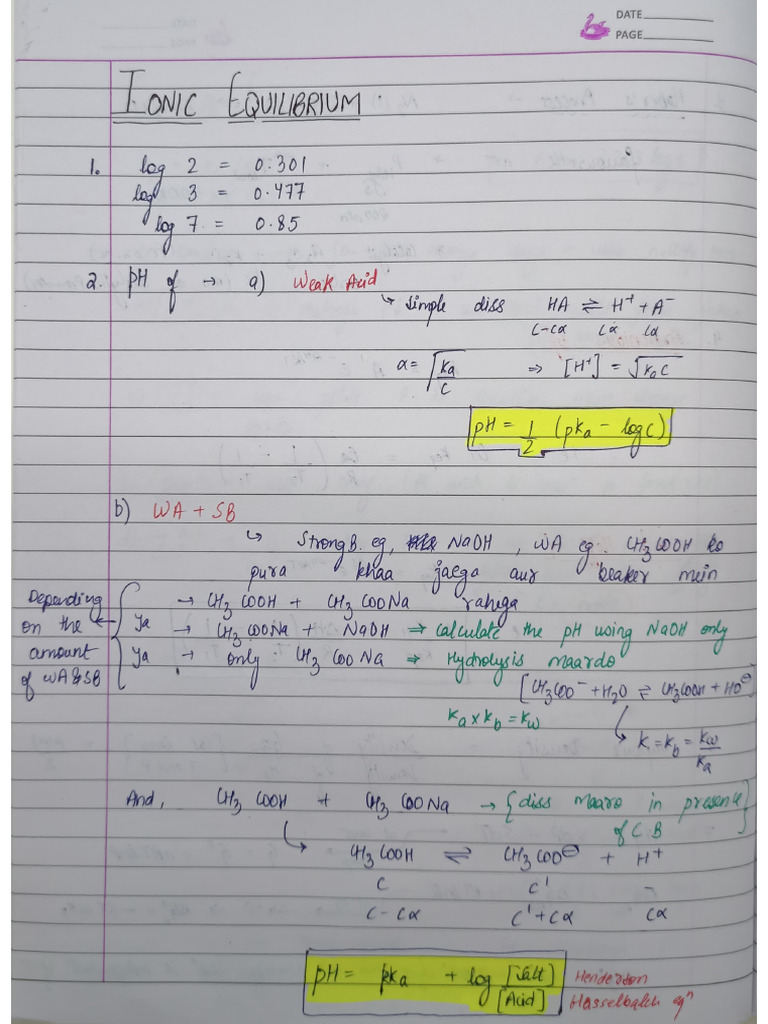 DATE
PAGE
IONIC EQUILIBRIUM
1. log 2 = 0.301
log 3 = 0.477
log 7 = 0.85
2. pH of → a) Weak Acid
↳ simple diss HA ⇌ H⁺ + A⁻
C-Cα Cα Cα
α = √(Ka/C) ⇒ [H⁺] = √(KaC)
pH = 1/2 (pKa - logC)
b) WA + SB
↳ Strong B. eg, NaOH, WA eg. CH3COOH ko
pura khaa jaega aur beaker mein
→ CH3COOH + CH3COONa rahega
Ya → CH3COONa + NaOH ⇒ calculate the pH using NaOH only
Ya → only CH3COONa ⇒ Hydrolysis maardo
Depending
on the
amount
of WA & SB
[CH3COO⁻ + H2O ⇌ CH3COOH + HO⊖
Ka × Kb = Kw
↳ K = Kb = Kw/Ka
And, CH3COOH + CH3COONa → {diss maaro in presence
of C.B}
↳ CH3COOH ⇌ CH3COO⊖ + H⁺
C C'
C-Cα C'+Cα Cα
pH = pKa + log [Salt]/[Acid]
Henderson
Hasselbalch eqⁿ